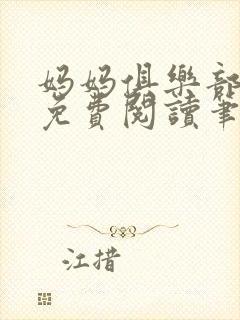 妈妈俱樂部
免費閱讀筆
江措